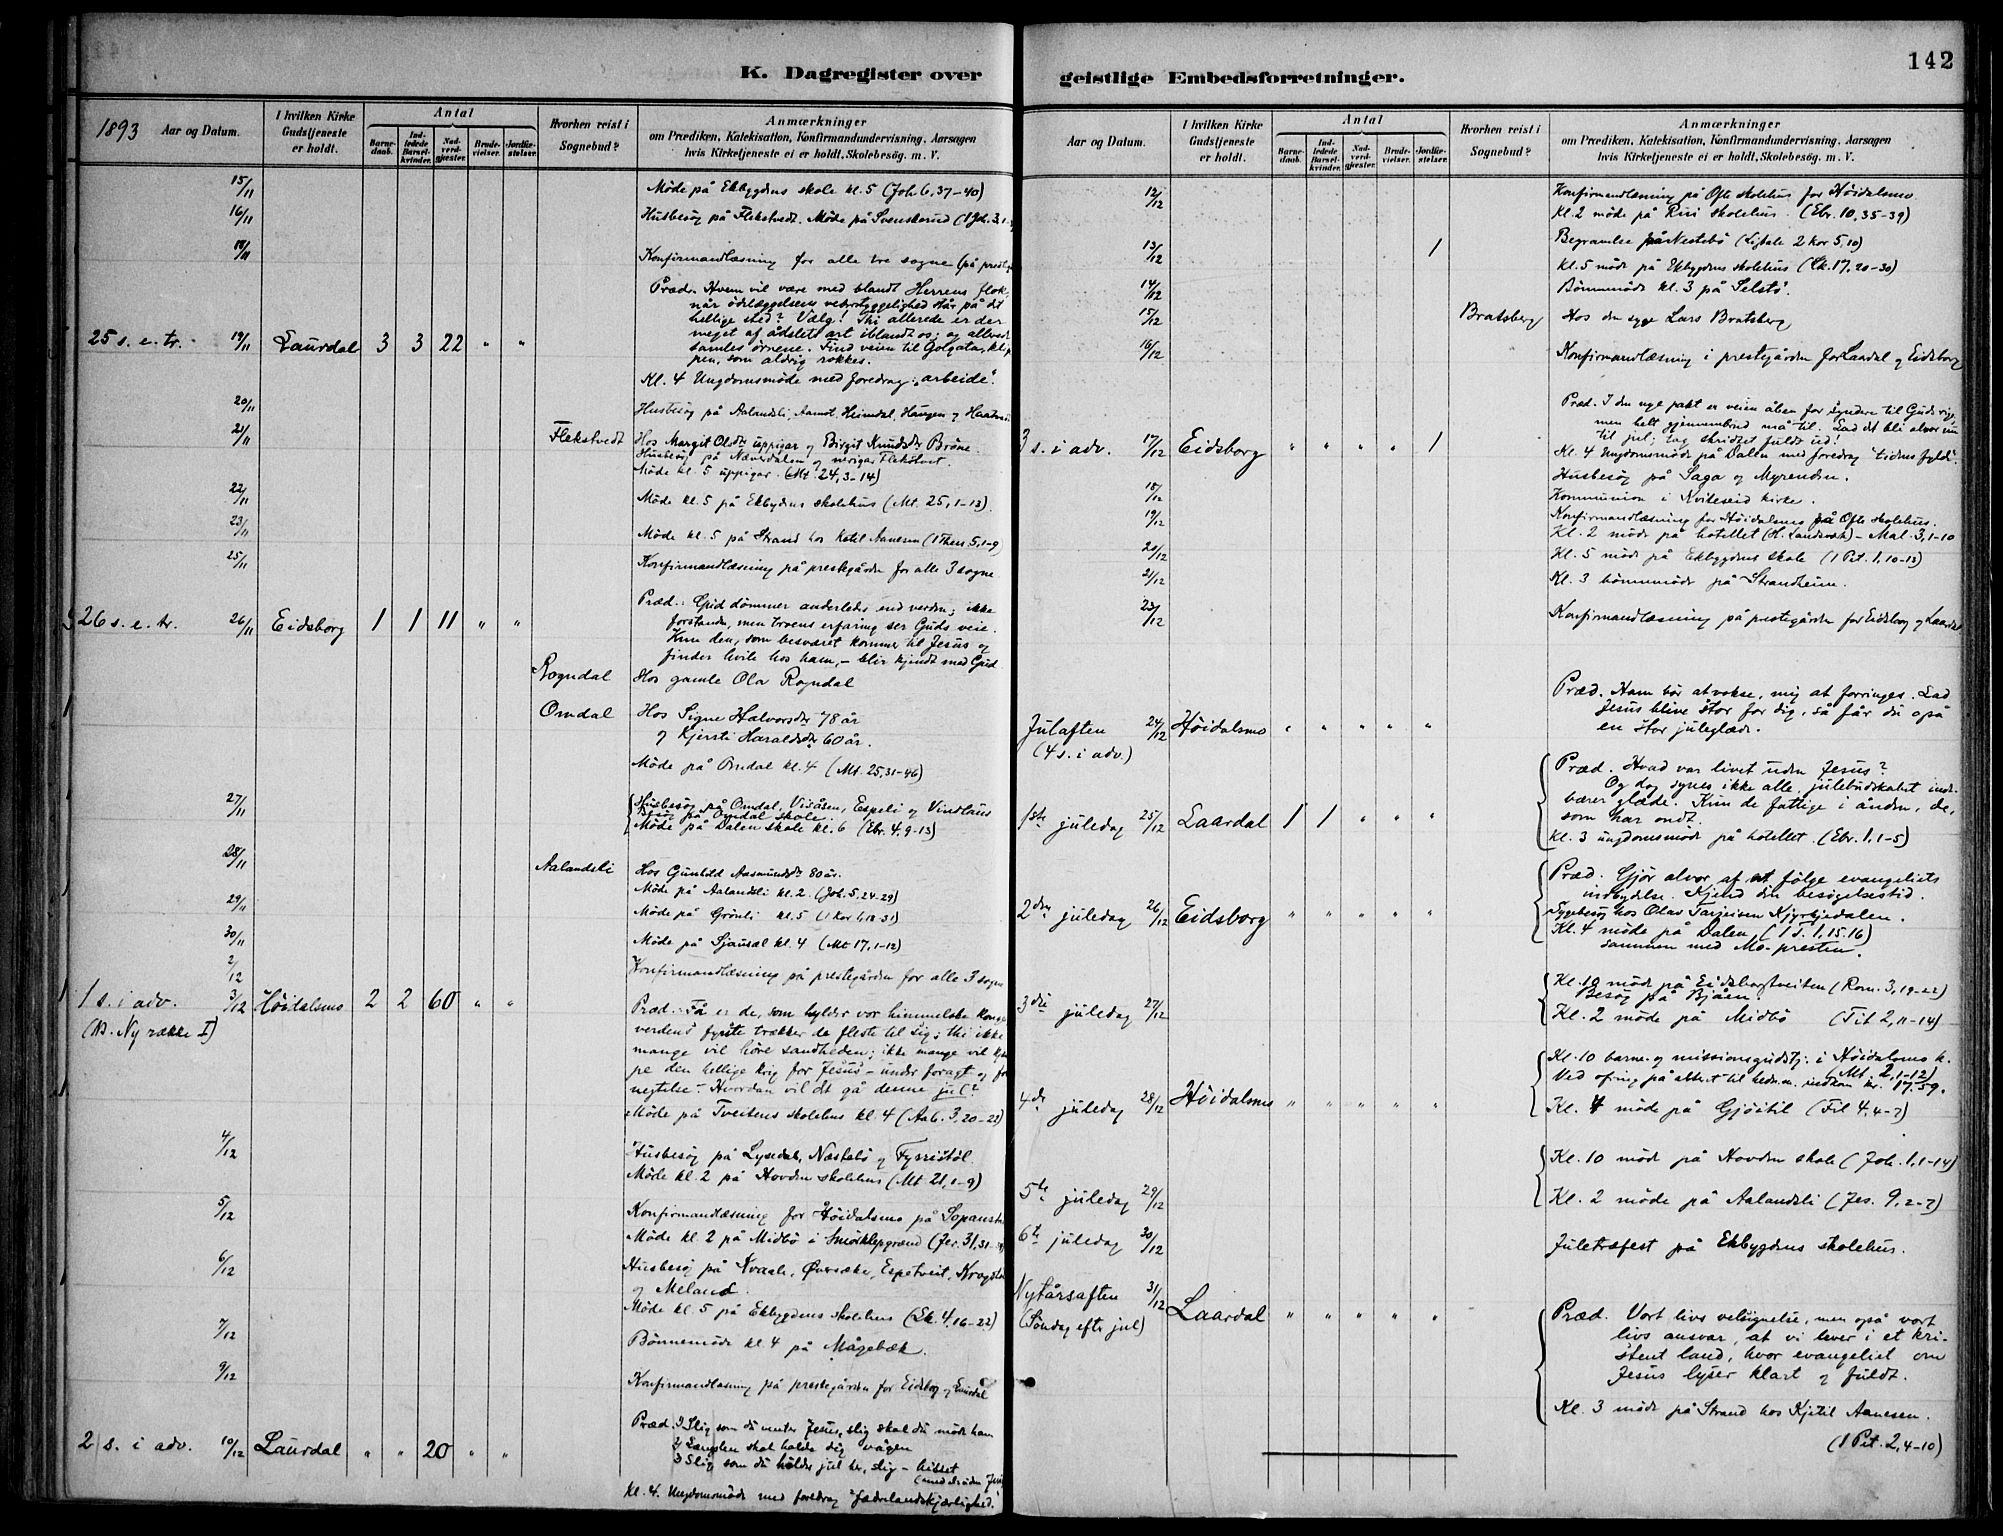 142
K. Dagregister over
geistlige Embedsforretninger.
1893 Aar og Datum.
I hvilken Kirke Gudstjeneste er holdt.
Antal
Barnedaab.
Indledede Barselkvinder.
Nadverdgjester.
Brudevielser.
Jordfæstelser.
Hvorhen reist i Sognebud?
Anmærkninger
om Prædiken, Katekisation, Konfirmandundervisning, Aarsagen
hvis Kirketjeneste ei er holdt, Skolebesög. m. V.
15/11 Møde på Ekbygdens skole kl. 5 (Joh. 6, 37-40)
16/11 Husbesøg på Flekstvedt. Møde på
18/11 Konfirmandlæsning for alle tre sogne
Præd. Hvem vil være med blandt Herrens flok,
når ödelæggelsens vederstyggelighed står på det
hellige sted? Vælg! Thi allerede er der
25 s. e. tr. 19/11 Laurdal 3 3 22 " "
meget af ådselets art iblandt os; og allerede
samles ørnene. Find veien til Golgata, klip-
pen, som aldrig rokkes.
Kl. 4 Ungdomsmøde med foredrag: "arbeide".
20/11 Husbesøg på Aalandsli, Aamot, Heimdal, Haugen og
21/11 Flekstvedt Hos Margit Olsdtr uppigar og Birgit Knudsdtr
Husbesøg på Næverdalen og nerigar Flekstvet.
Møde kl. 5 uppigar. (Mt. 24, 3-14)
22/11 Møde kl. 5 på Ekbygdens skolehus (Mt. 25, 1-13).
23/11 Møde kl. 5 på Strand hos Ketil Aanesen (1 Thess. 5, 1-9)
25/11 Konfirmandlæsning på prestegården for alle 3 sogne.
26 s. e. tr. 26/11 Eidsborg 1 1 11 " "
Præd.: Gud dömmer anderledes end verden; ikke
forstanden, men troens erfaring ser Guds veie.
Kun den, som besværet kommer til Jesus og
finder hvile hos ham, – blir kjendt med Gud.
Rogndal Hos gamle Olav Rogndal
Omdal Hos Signe Halvorsdtr 78 år
og Kjersti Haraldsdtr 60 år.
Møde på Omdal kl. 4 (Mt. 25, 31-46)
27/11 Husbesøg på Omdal, Visåsen, Espeli og Vindlaus
Besøg på Omdal skole.
Møde på Dalen skole kl. 6 (Ebr. 4, 9-13)
28/11 Aalandsli Hos Gunhild Aasmundsdtr 80 år.
Møde på Aalandsli kl. 2 (Joh. 5, 24-29)
29/11 Møde på Grönli kl. 5
30/11 Møde på kl. 4 (Mt. 17, 1-12)
2/12 Konfirmandlæsning på prestegården for alle 3 sogne
1 s. i adv. 3/12 Höidalsmo 2 2 60 " "
(NB. Ny række I)
Præd.: Få er de, som hylder vor himmelske konge
verdens fyrste trækker de fleste til sig; thi ikke
mange vil høre sandheden; ikke mange vil kjæm
pe den hellige krig for Jesus – under foragt og for
negtelse. Hvordan vil det gå denne jul?
Møde på Tveitens skolehus kl. 4 (Aab. 3, 20-22)
4/12 Husbesøg på Lysedal, Næstebø og Fyrristöl.
Møde kl. 2 på Hovden skolehus (Mt. 21, 1-9)
5/12 Konfirmandlæsning for Höidalsmo på
Møde kl. 2 på Midbö i Smörklepgrænd (Jer. 31, 31-
6/12 Husbesøg på
og Meland.
Møde kl. 5 på Ekbygdens skolehus (Lk. 4, 16-22)
7/12 Bönnemöde kl. 4 på Mågebæk.
9/12 Konfirmandlæsning på prestegården for Eidsborg og Laurdal
2 s. i adv. 10/12 Laurdal " " 20 " "
Præd. 1 Slig som du venter Jesus, slig skal du møde ham
2 Længslen skal holde dig vågen
3 Slig som du holder jul her, slig – hisset
Kl. 4. Ungdomsmøde med foredrag "fædrelandskjærlighed."
Aar og Datum.
I hvilken Kirke Gudstjeneste er holdt.
Antal
Barnedaab.
Indledede Barselkvinder.
Nadverdgjester.
Brudevielser.
Jordfæstelser.
Hvorhen reist i Sognebud?
Anmærkninger
om Prædiken, Katekisation, Konfirmandundervisning, Aarsagen
hvis Kirketjeneste ei er holdt, Skolebesög. m. V.
12/12 Konfirmandlæsning på Ofte skolehus for Höidalsmo.
Kl. 2 møde på Rui skolehus. (Ebr. 10, 35-39)
13/12 1 Begravelse på Nestebö (Ligtale 2 Kor 5, 10)
Kl. 5 møde på Ekbygdens skolehus (Lk. 17, 20-30)
14/12 Bönnemöde kl. 3 på Selstö.
15/12 Bratsberg Hos den syge Lars Bratsberg
16/12 Konfirmandlæsning i prestegården for Laardal og Eidsborg
Præd. I den nye pakt er veien åben for syndere til Guds rige,
men helt gjennembrud må til. Lad det bli alvor nu
til jul; tag skridtet fuldt ud!
3 s. i adv. 17/12 Eidsborg " " " " 1
Kl. 4 Ungdomsmøde på Dalen med foredrag "tidens fylde".
Husbesøg på Saga og Myrenden.
18/12 Kommunion i Kviteseid kirke.
19/12 Konfirmandlæsning for Höidalsmo på Ofte skolehus.
Kl. 2 møde på hotellet – Mal. 3, 1-10
Kl. 5 møde på Ekbygdens skole (1 Pet. 1, 10-13)
21/12 Kl. 3 bönnemöde på Strandheim.
23/12 Konfirmandlæsning på prestegården for Eidsborg og Laardal
Præd. Ham bör at vokse, mig at forringes. Lad
Jesus blive stor for dig, så får du også
en stor juleglæde.
Julaften 24/12 Höidalsmo " " " " "
(4 s. i adv.)
Præd. Hvad var livet uden Jesus?
Og dog synes ikke alle, julebudskabet inde-
bærer glæde. Kun de fattige i ånden, de,
som har ondt.
1ste juledag 25/12 Laardal 1 1 " " "
Kl. 3 ungdomsmøde på hotellet. (Ebr. 1, 1-5)
Præd. Gjör alvor af at følge evangeliets
indbydelse. Kjend din besögelsestid.
2den juledag 26/12 Eidsborg " " " " "
Sygebesøg hos Olav Tarjeisen Kyrkjedalen.
Kl. 4 møde på Dalen, (1 T. 1, 15.16)
sammen med Mo-presten.
3die juledag 27/12 Kl. 10 møde på Eidsborgtveiten (Rom. 3, 19-22)
Besøg på Bjåen.
Kl. 2 møde på Midbö (Tit 2, 11-14)
4de juledag 28/12 Höidalsmo " " " " "
Kl. 10 barne- og missionsgudstj. i Höidalsmo k.
(Mt. 2, 1-12)
Ved ofring på alteret til hedn.m. indkom kr. 17.59.
Kl. 4 møde på Gjöitil (Fil 4, 4-7)
5te juledag 29/12 Kl. 10 møde på Hovden skole (Joh. 1, 1-14)
Kl. 2 møde på Aalandsli (Jes. 9, 2-7)
6te juledag 30/12 Juletræfest på Ekbygdens skolehus.
Nytårsaften 31/12 Laardal " " " " "
(Söndag efter jul)
Præd. Vort livs velsignelse, men også vort
livs ansvar, at vi lever i et kri-
stent land, hvor evangeliet om
Jesus lyser klart og fuldt.
Kl. 3 møde på Strand hos Kjetil Aanesen.
(1 Pet. 2, 4-10)